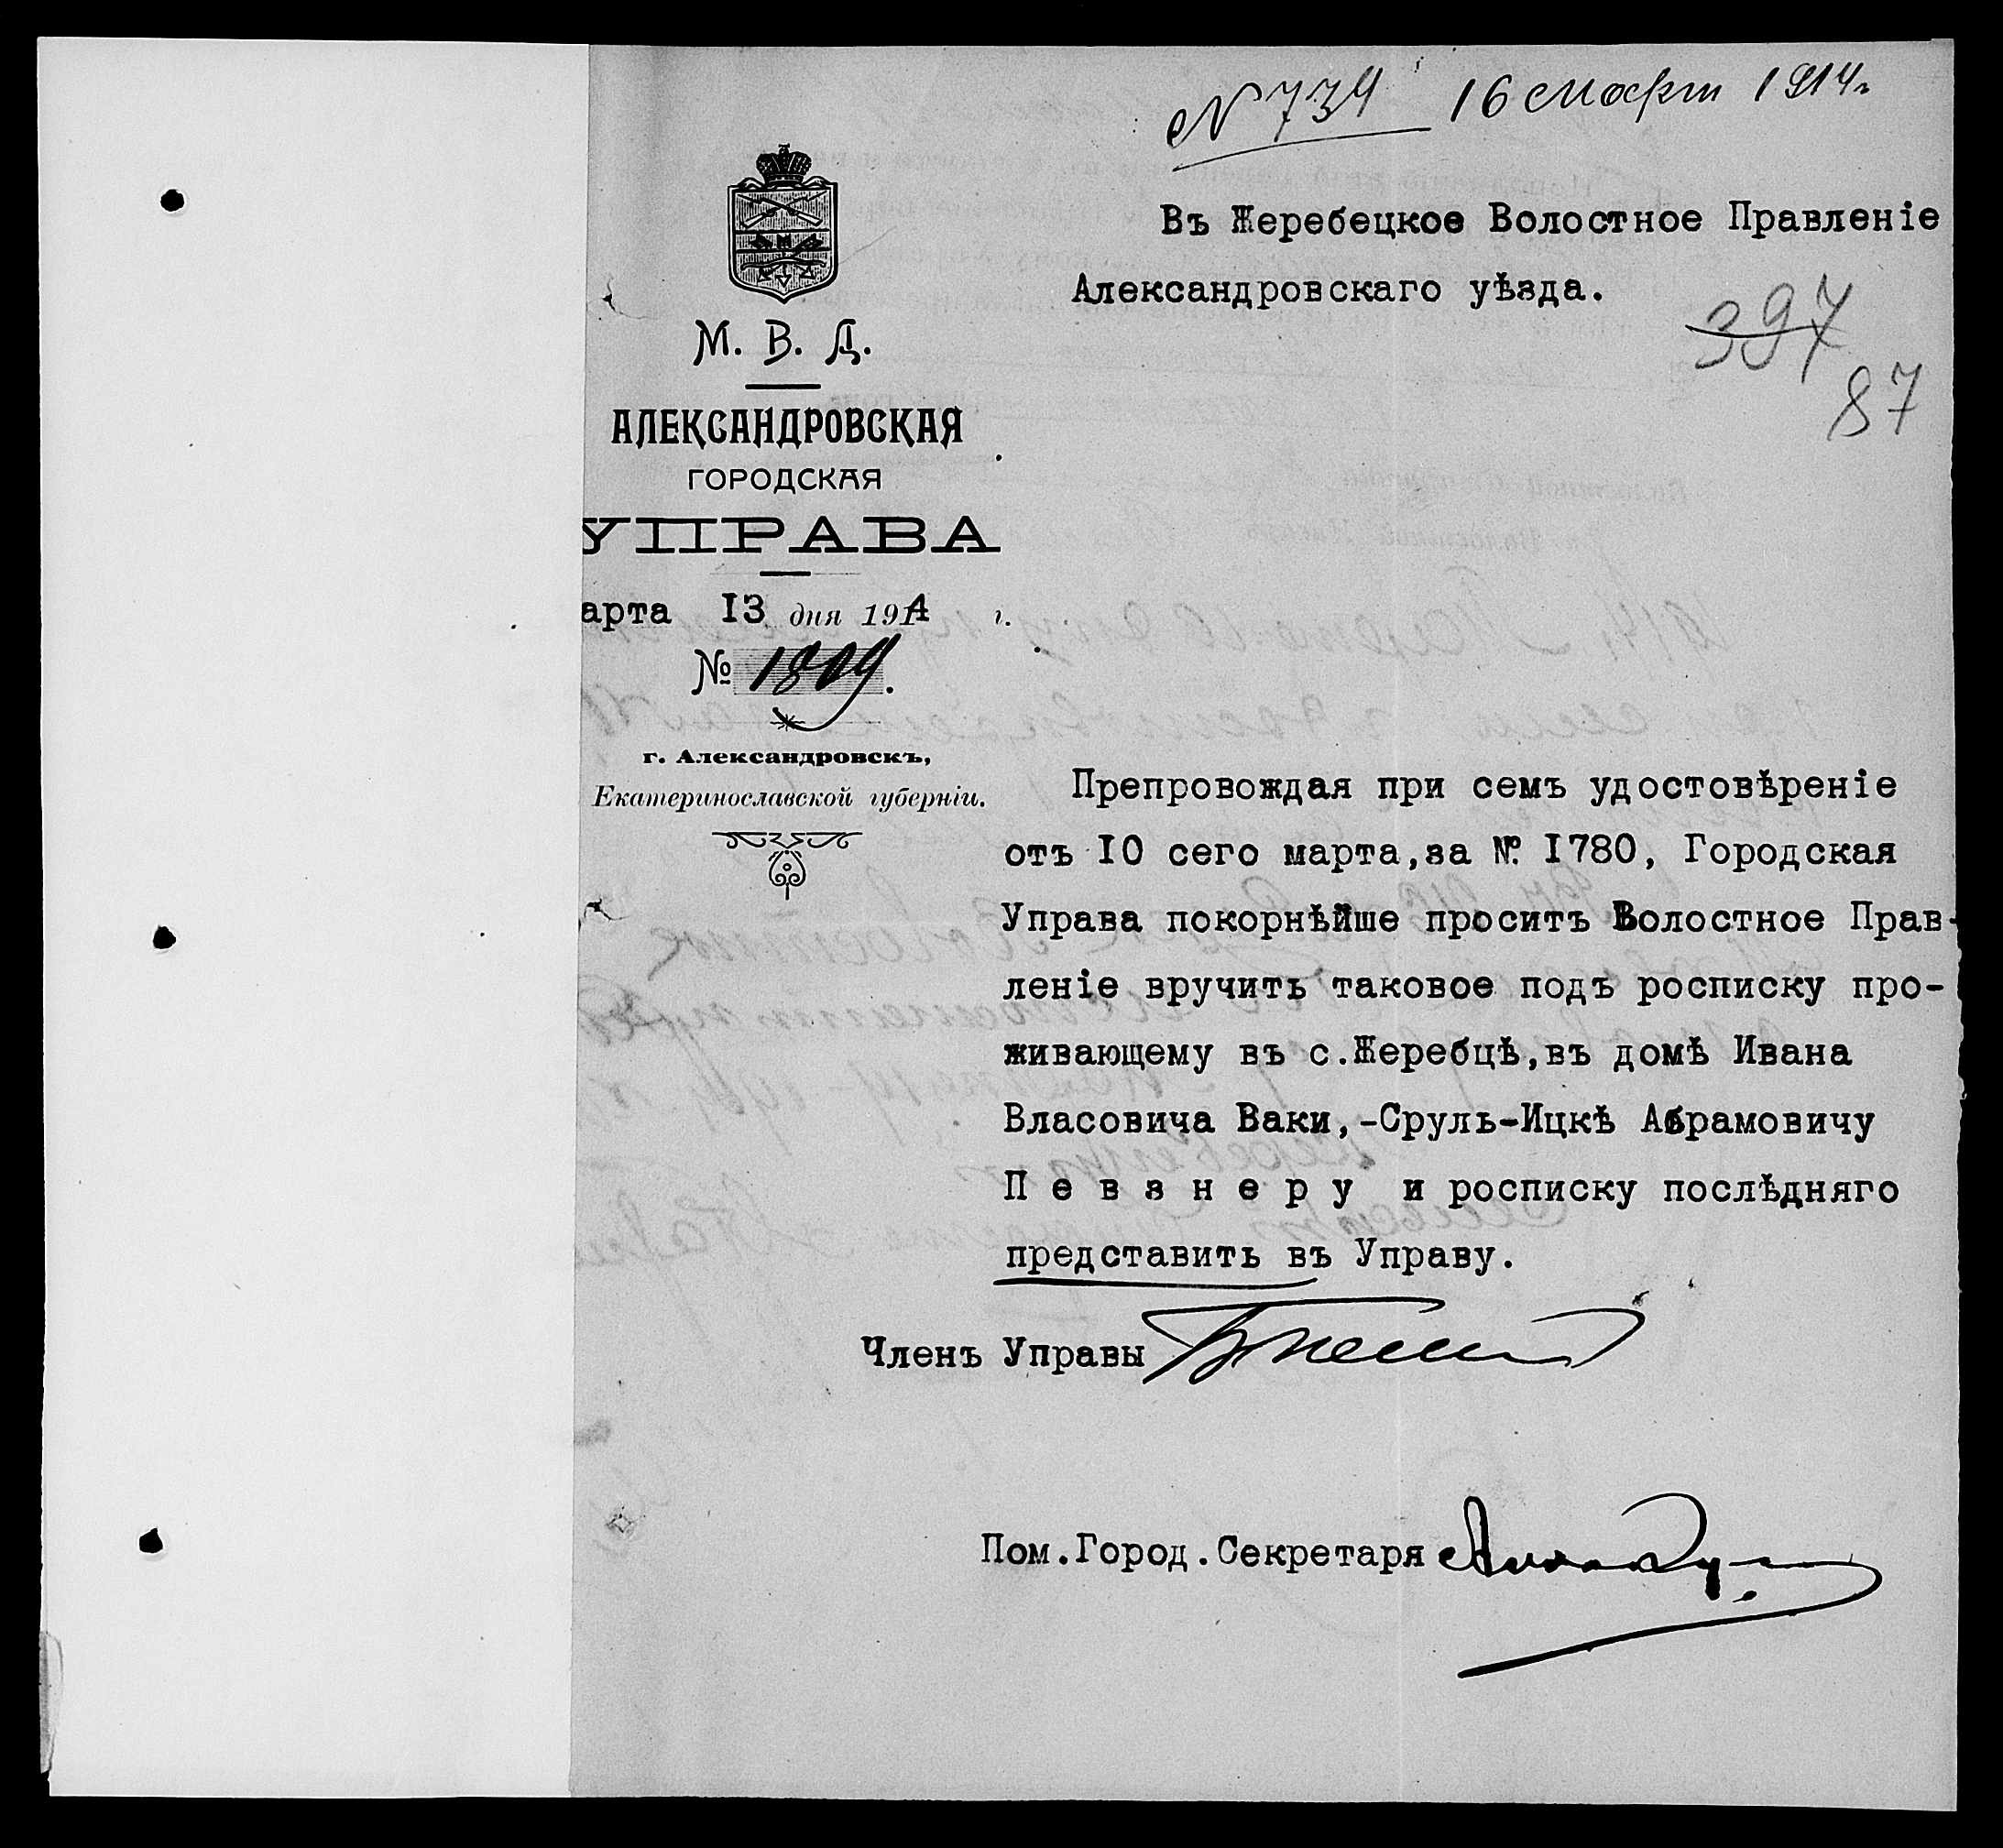 № 734 16 Март 1914 г.
М. В. Д.
АЛЕКСАНДРОВСКАЯ
ГОРОДСКАЯ
УПРАВА
арта 13 дня 1914 г.
№ 1809.
г. Александровскъ,
Екатеринославской губерніи.
Въ Жеребецкое Волостное Правленіе
Александровскаго уѣзда.
397
87
Препровождая при семъ удостовѣреніе
отъ 10 сего марта, за №. 1780, Городская
Управа покорнѣйше проситъ Волостное Прав-
леніе вручить таковое подъ росписку про-
живающему въ с.Жеребцѣ, въ домѣ Ивана
Власовича Ваки,-Сруль-Ицкѣ Абрамовичу
П е в з н е р у и росписку послѣдняго
представить въ Управу.
Членъ Управы
Пом.Город.Секретаря